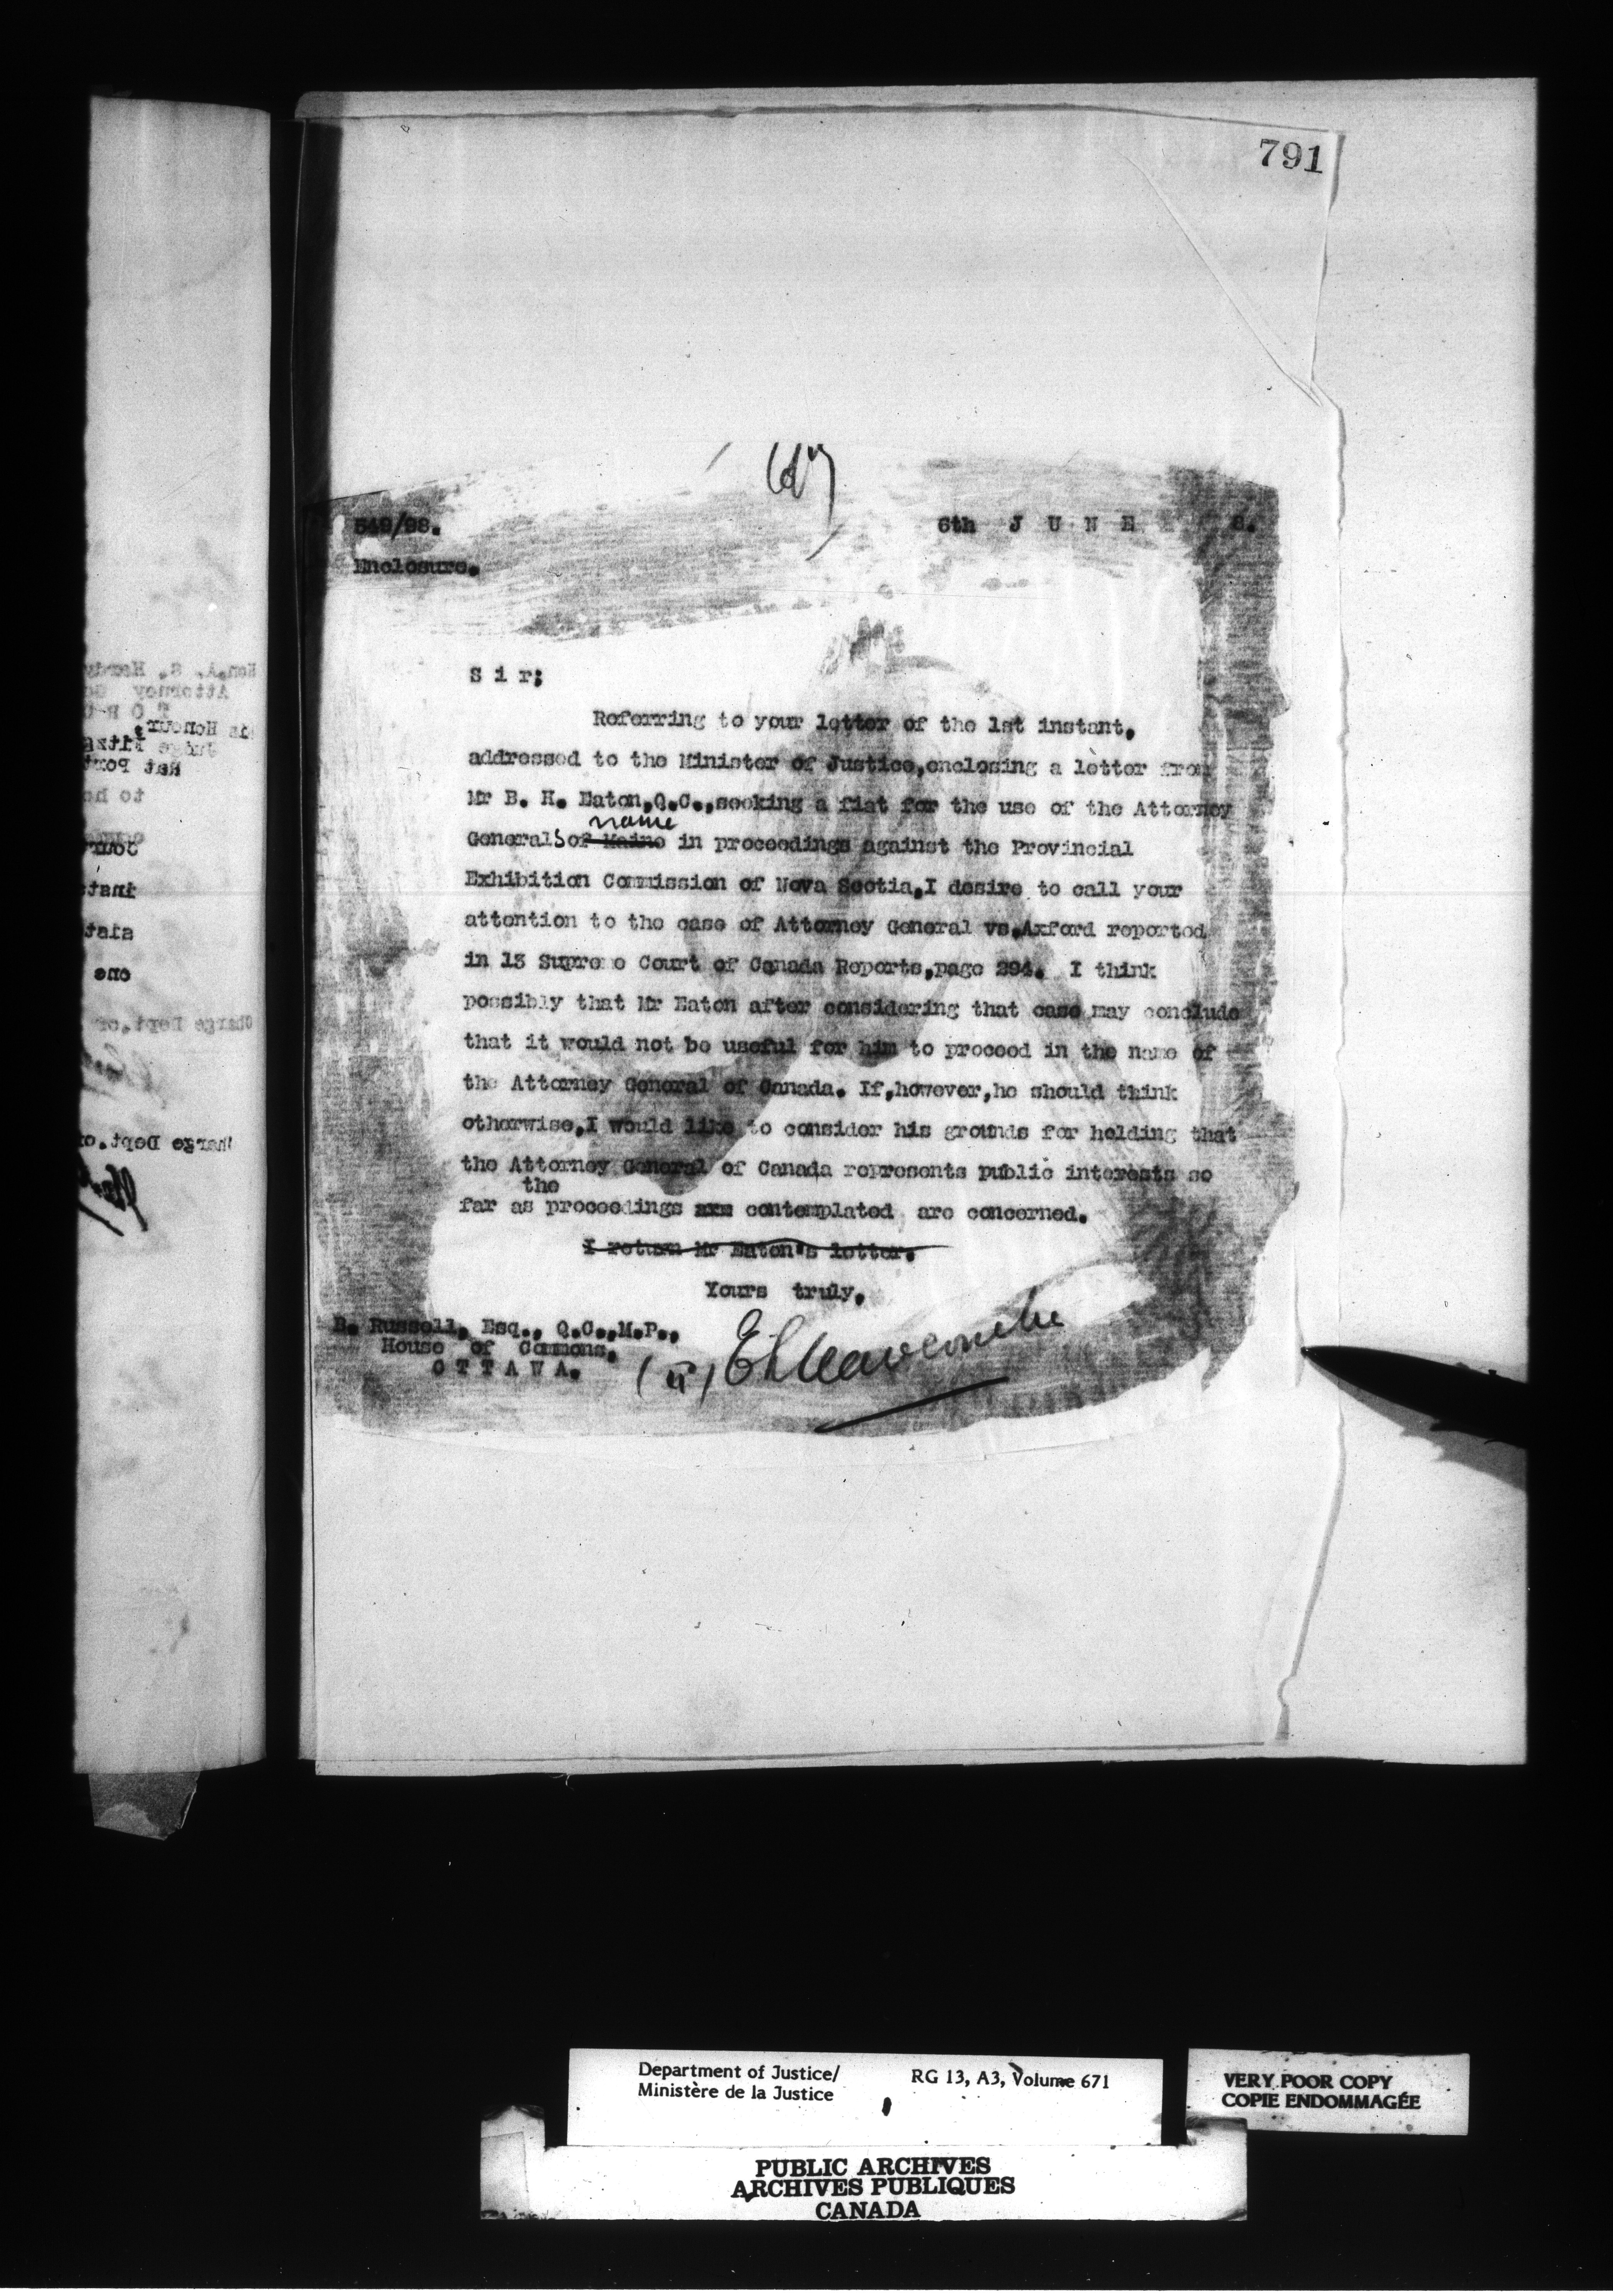 791
549/98.
6th J U N E 8.
Enclosure.
S i r;
Referring to your letter of the 1st instant,
addressed to the Minister of Justice,enclosing a letter from
Mr B. H. Eaton,Q.C.,seeking a fiat for the use of the Attorney
name
Generals of Maine in proceedings against the Provincial
Exhibition Commission of Nova Scotia,I desire to call your
attention to the case of Attorney General vs.Axford reported
in 13 Supreme Court of Canada Reports,page 294. I think
possibly that Mr Eaton after considering that case may conclude
that it would not be useful for him to proceed in the name of
the Attorney General of Canada. If,however,he should think
otherwise,I would like to consider his grounds for holding that
the Attorney General of Canada represents public interests so
the
far as proceedings are contemplated are concerned.
I return Mr Eaton's letter.
Yours truly,
B. Russell, Esq., Q.C.,M.P.,
House of Commons,
O T T A W A.
E L Newcombe
Department of Justice/
Ministère de la Justice
RG 13, A3, Volume 671
VERY POOR COPY
COPIE ENDOMMAGÉE
PUBLIC ARCHIVES
ARCHIVES PUBLIQUES
CANADA